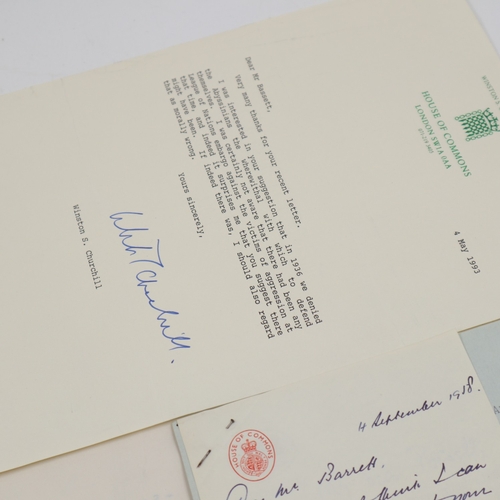 WINSTON
HOUSE OF COMMONS
LONDON SW1A 0AA
4 May 1993
Dear Mr Bassett,
Very many thanks for your recent letter.
I was interested in your suggestion that in 1936 we denied
the Abyssinians the wherewithal with which to defend
themselves. I was certainly not aware that there had been any
League of Nations embargo against the victims of aggression at
that time, and indeed it surprises me that you suggest there
might have been. If indeed there was, I should also regard
that as morally wrong.
Yours sincerely,
Winston S. Churchill
HOUSE OF COMMONS
4 September 1918.
Dear Mr. Barrett.
I can